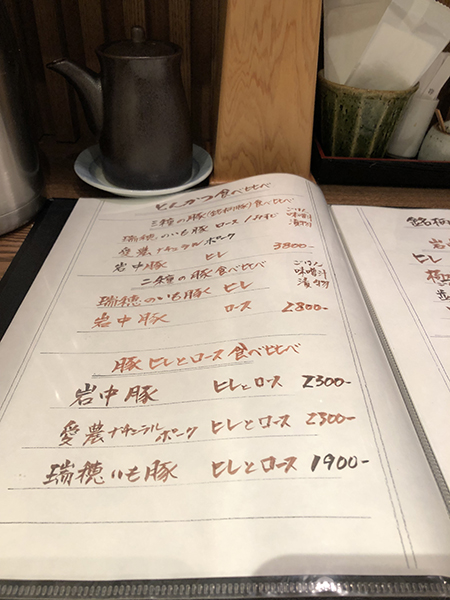 とんかつ食べ比べ
三種の豚(銘柄豚)食べ比べ
瑞穂のいも豚 ロース
愛農ナチュラルポーク
岩中豚 ヒレ 3800-
ごはん
味噌汁
漬物
二種の豚食べ比べ
瑞穂のいも豚 ヒレ
岩中豚 ロース 2800-
ごはん
味噌汁
漬物
豚ヒレとロース食べ比べ
岩中豚 ヒレとロース 2300-
愛農ナチュラルポーク ヒレとロース 2800-
瑞穂いも豚 ヒレとロース 1900-
銘柄
ヒレ